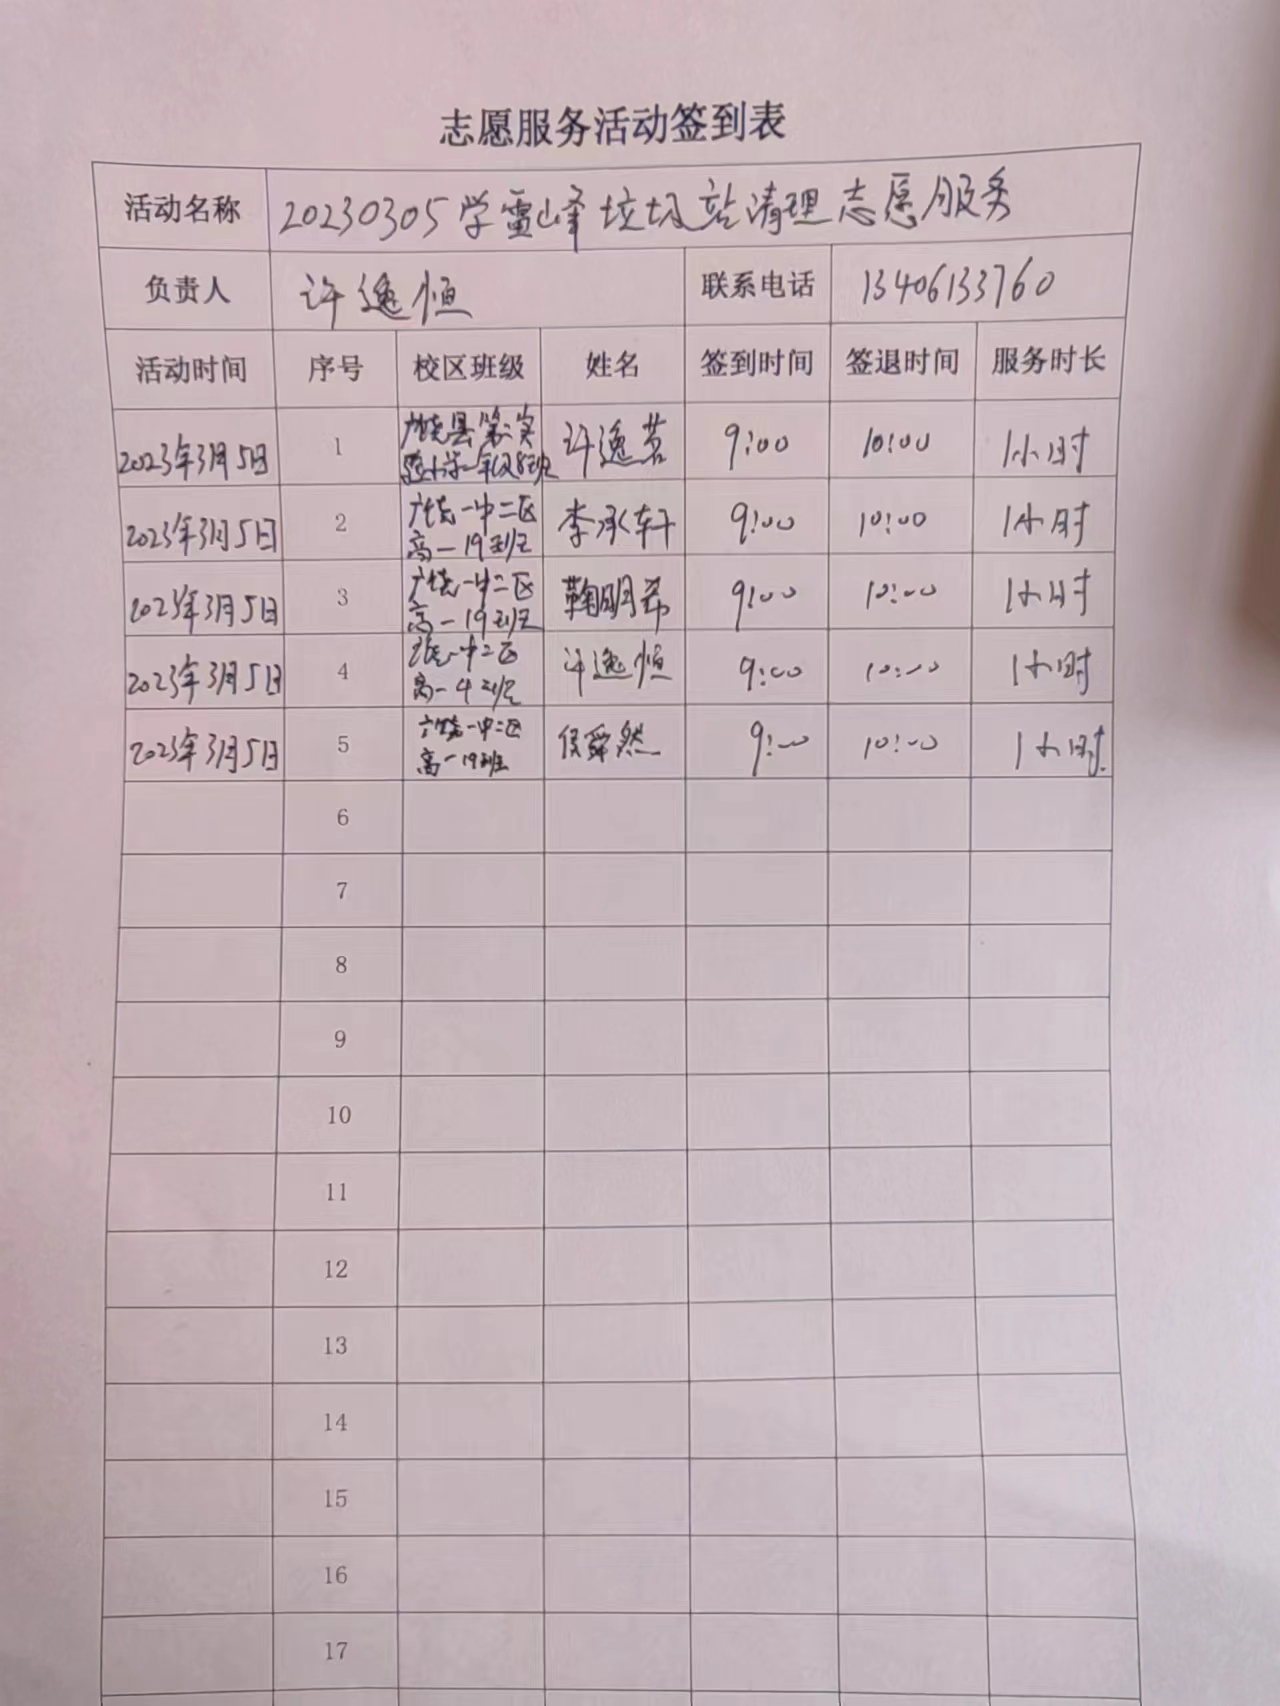 志愿服务活动签到表
活动名称 20230305学雷峰垃圾站清理志愿服务
负责人 许逸恒 联系电话 13406133760
活动时间 序号 校区班级 姓名 签到时间 签退时间 服务时长
2023年3月5日 1 广饶县第二实 许逸茗 9:00 10:00 1小时
验小学一年级8班
2023年3月5日 2 广饶一中二区 李承轩 9:00 10:00 1小时
高一19班
2023年3月5日 3 广饶一中二区 鞠明希 9:00 10:00 1小时
高一19班
2023年3月5日 4 广饶一中二区 许逸恒 9:00 10:00 1小时
高一4班
2023年3月5日 5 广饶一中二区 侯舜然 9:00 10:00 1小时.
高一19班
6
7
8
9
10
11
12
13
14
15
16
17